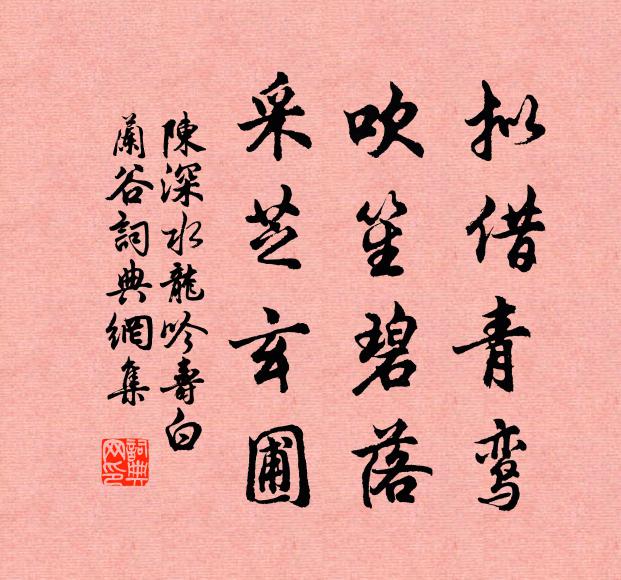 拟借青鸾
吹笙碧落
采芝玄圃
陳深水龍吟壽白
蘭谷詞典網集
詞典网印